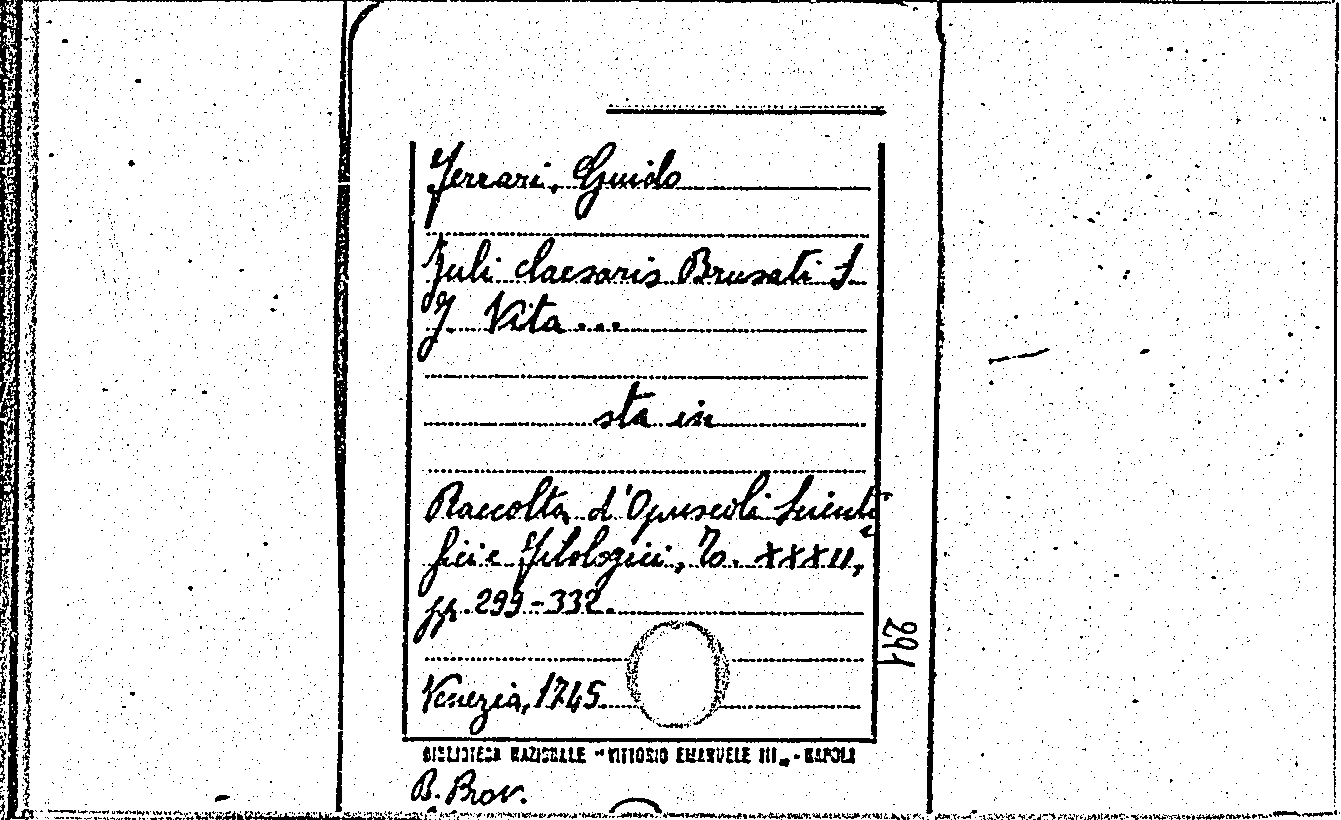 Ferrari, Guido
Juli Caesaris Brusati S.
J. Vita...
sta in
Raccolta d'Opuscoli Scienti
fici e Filologici, To. XXXII,
pp. 299-332.
291
Venezia, 1745.
BIBLIOTECA NAZIONALE "VITTORIO EMANUELE III" - NAPOLI
B. Prov.